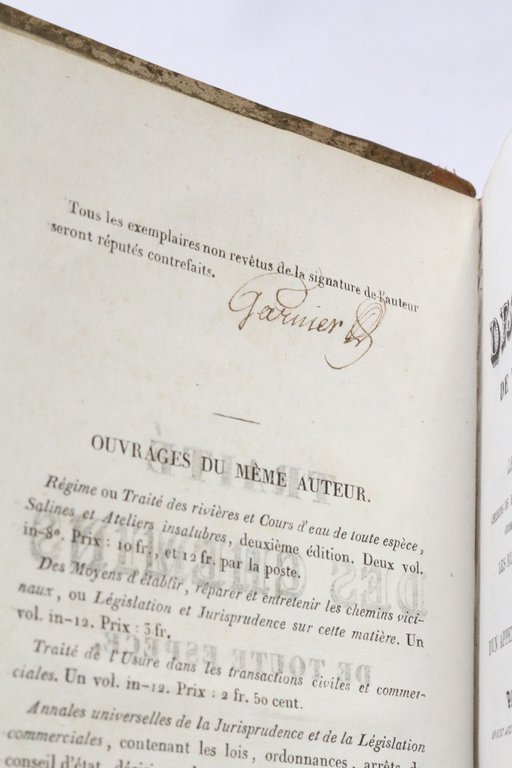 Tous les exemplaires non revêtus de la signature de l'auteur
seront réputés contrefaits.
Garnier
OUVRAGES DU MÊME AUTEUR.
Régime ou Traité des rivières et Cours d'eau de toute espèce,
Salines et Ateliers insalubres, deuxième édition. Deux vol.
in-8°. Prix : 10 fr., et 12 fr. par la poste.
Des Moyens d'établir, réparer et entretenir les chemins vici-
naux, ou Législation et Jurisprudence sur cette matière. Un
vol. in-12. Prix : 3 fr.
Traité de l'Usure dans les transactions civiles et commer-
ciales. Un vol. in-12. Prix : 2 fr. 50 cent.
Annales universelles de la Jurisprudence et de la Législation
commerciales, contenant les lois, ordonnances, arrêts du
conseil d'état
TRAITÉ
DES CHEMINS
DE TOUTE ESPÈCE
DE